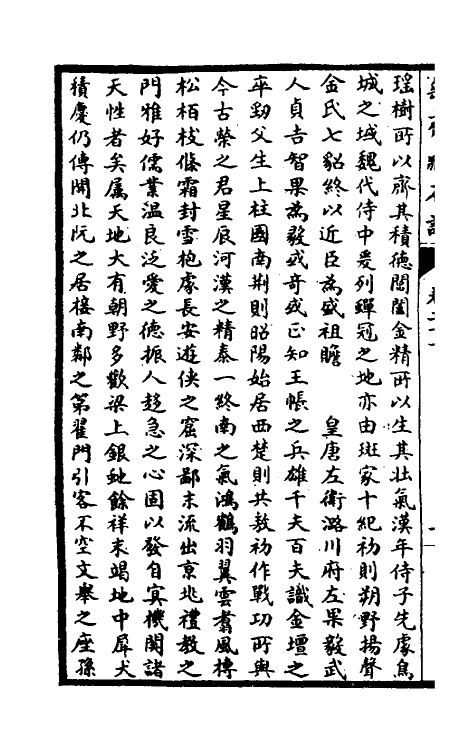 瑶樹所以齋其積德閬闔金精所以生其壯氣漢年侍子先處烏
城之域魏代侍中爰列蟬冠之地亦由班家十紀初則朔野揚聲
金氏七貂終以近臣為盛祖瞻　　皇唐左衛潞川府左果毅武
人貞吉智果為毅或奇或正知王帳之兵雄千夫百夫識金壇之
卒劉父生上柱國南荆則昭陽始居西楚則共敖初作戰功所與
今古榮之君星辰河漢之精泰一終南之氣鴻鶴羽翼雲翥風摶
松栢枝條霜封雪抱處長安遊俠之窟深鄙末流出京兆禮教之
門雅好儒業溫良泛愛之德振人趍急之心固以發自寘機関諸
天性者矣属天地大有朝野多歡梁上銀虵餘祥未竭地中犀犬
積慶仍傳閈北阮之居接南鄰之第翟門引客不空文舉之座孫